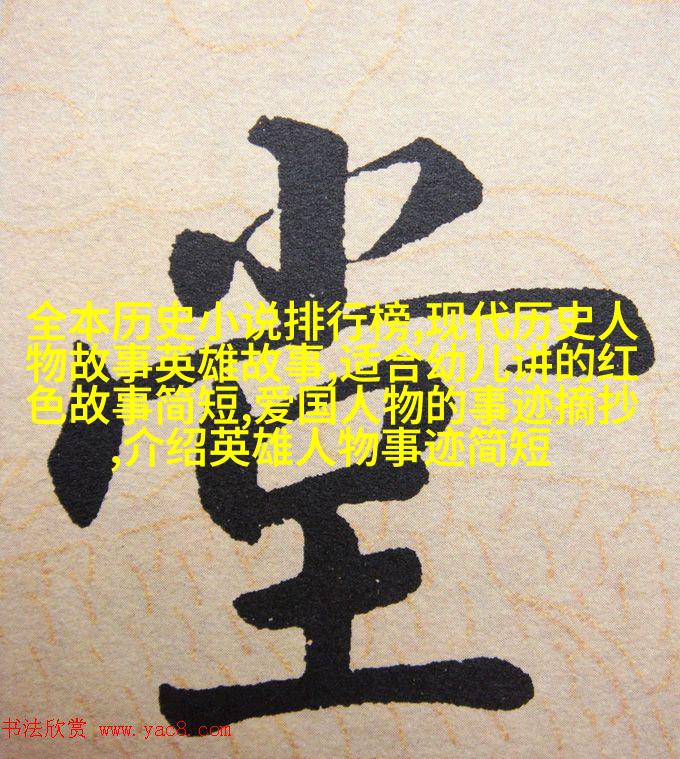 堂
全本历史小说排行榜,现代历史人
物故事英雄故事,适合幼儿讲的红
色故事简短,爱国人物的事迹摘抄
,介绍英雄人物事迹简短
书法欣赏 www.yac8.com